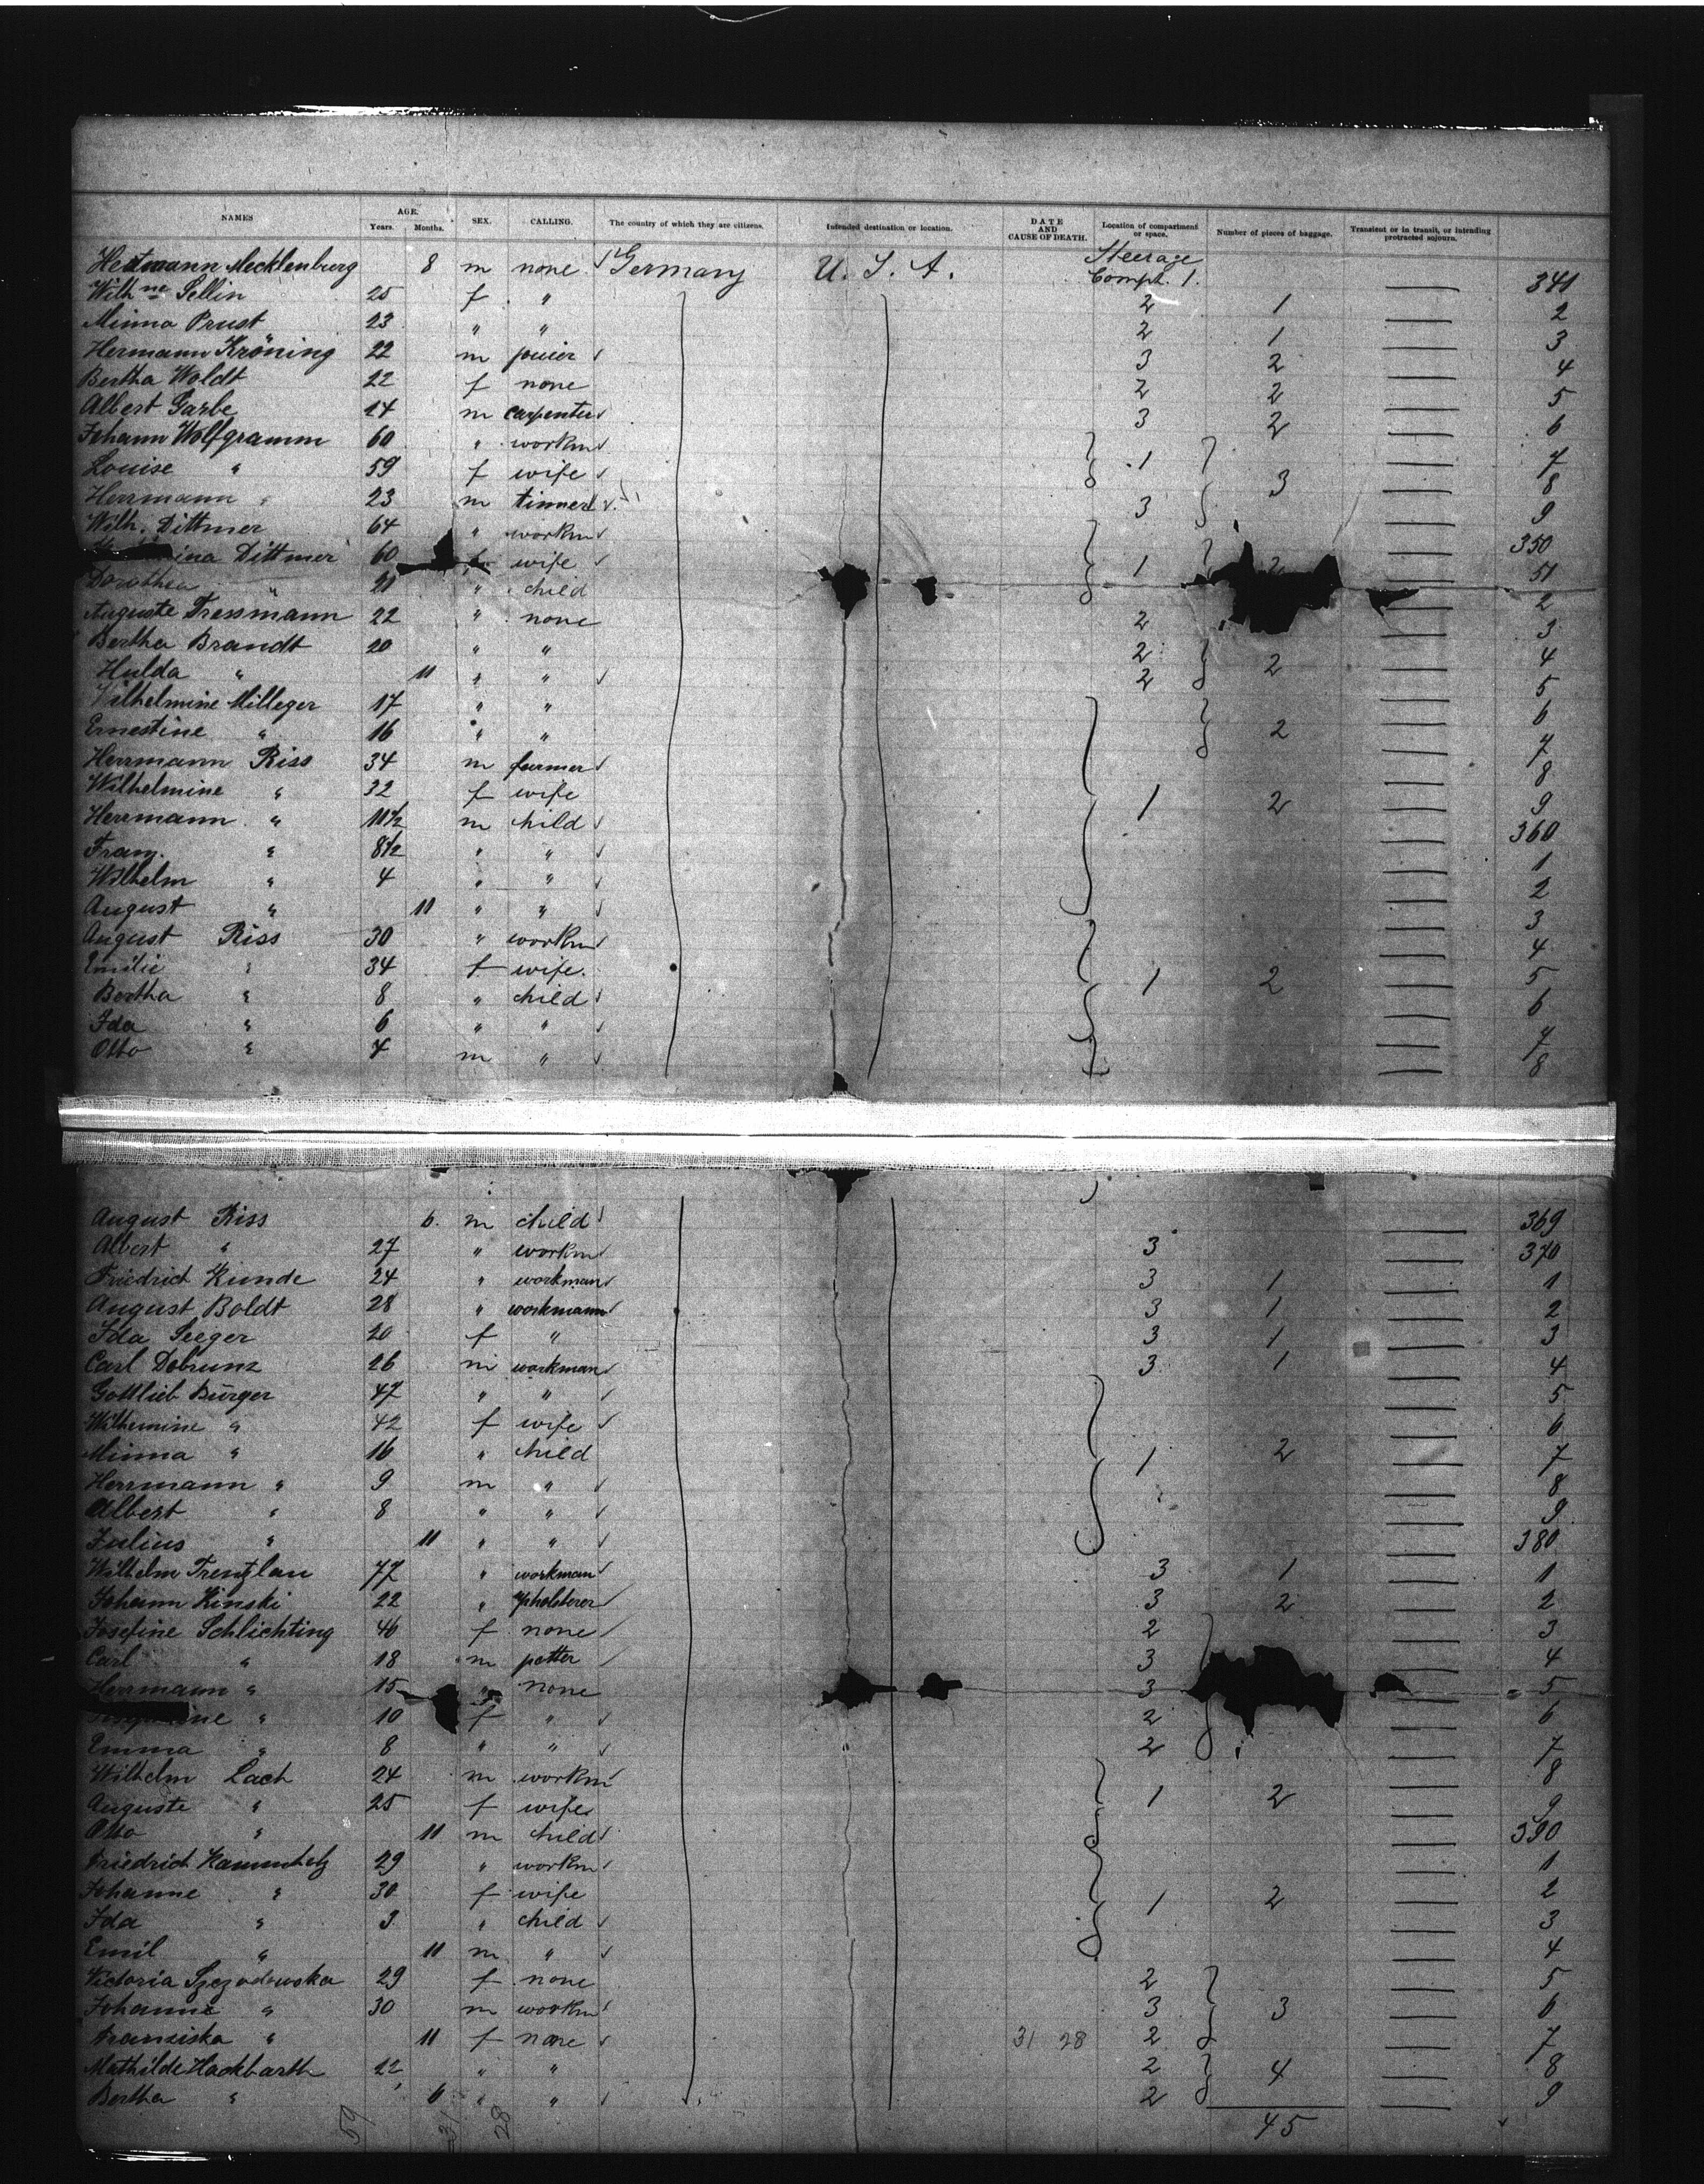 NAMES AGE. Years. Months. SEX. CALLING. The country of which they are citizens. Intended destination or location. DATE AND CAUSE OF DEATH. Location of compartment or space. Number of pieces of baggage. Transient or in transit, or intending protracted sojourn.
Hermann Mecklenburg 8 m none Germany U. S. A. Steerage Compt. 1. 341
Wilhne Sellin 25 f " 2 1 2
Minna Prust 23 " " 2 1 3
Hermann Kröning 22 m 3 2 4
Bertha Woldt 22 f none 2 2 5
Albert Garbe 24 m carpenter 3 2 6
Johann Wolfgramm 60 " workm 1 3 7
Louise " 59 f wife 8
Herrmann " 23 m tinner 3 9
Wilh. Dittmer 64 " workm 350
ina Dittmer 60 f wife 1 2 51
Dorothea " 21 " child 2
Auguste Tressmann 22 " none 2 3
Bertha Brandt 20 " " 2 2 4
Hulda " 11 " " 2 5
Wilhelmine Milleger 17 " " 6
Ernestine " 16 " " 2 7
Herrmann Riss 34 m farmer 8
Wilhelmine " 32 f wife 1 2 9
Herrmann " 11½ m child 360
Franz " 8½ " " 1
Wilhelm " 4 " " 2
August " 11 " " 3
August Riss 30 " workm 4
Emilie " 34 f wife 1 2 5
Bertha " 8 " child 6
Ida " 6 " " 7
Otto " 4 m " 8
August Riss 6 m child 369
Albert " 27 " workm 3 370
Friedrich Kunde 24 " workman 3 1 1
August Boldt 28 " workmann 3 1 2
Ida Seeger 20 f " 3 1 3
Carl Dobrunz 26 m workman 3 1 4
Gottlieb Bürger 47 " " 5
Wilhemine " 42 f wife 6
Minna " 16 " child 1 2 7
Herrmann " 9 m " 8
Albert " 8 " " 9
Julius " 11 " " 380
Wilhelm Trenzlau 77 " workman 3 1 1
Johann Kinski 22 " upholsterer 3 2 2
Josefine Schlichting 46 f none 2 3
Carl " 18 m potter 3 4
Herrmann " 15 " none 3 5
ine " 10 f " 2 6
Emma " 8 " " 2 7
Wilhelm Lach 24 m workm 8
Auguste " 25 f wife 1 2 9
Otto " 11 m child 390
Friedrich Kammholz 29 " workm 1
Johanne " 30 f wife 1 2 2
Ida " 3 " child 3
Emil " 11 m " 4
Victoria Szczodowska 29 f none 2 5
Johanne " 30 m workm 3 3 6
Franziska " 11 f none 31 28 2 7
Mathilde Hackbarth 22 " " 2 4 8
Bertha " 6 " " 2 9
59 31 28 45